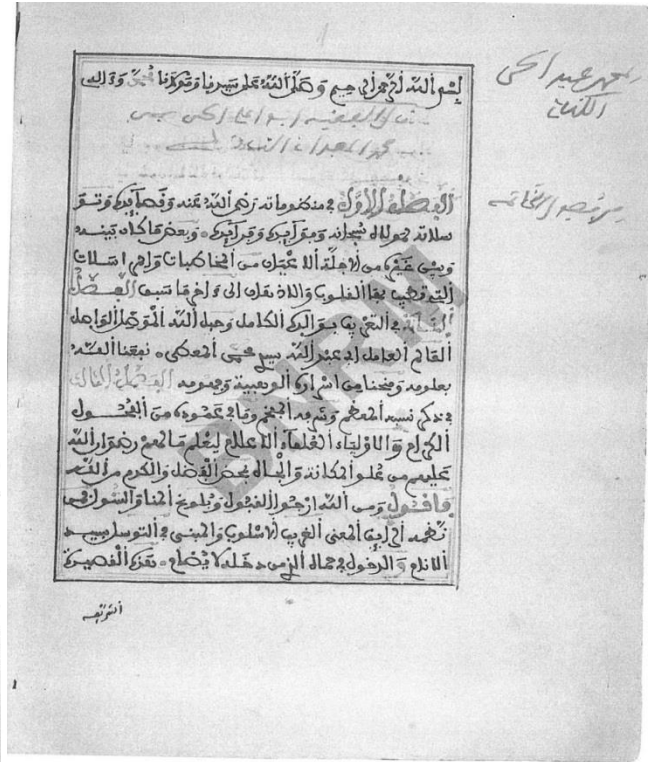 بسم الله الرحمن الرحيم وصلى الله على سيدنا ومولانا محمد وءاله
الفصل الأول في منظوماته رضي الله عنه وقصايده وتو
سلاته لمولاه سبحانه وبوايده وفرايده وبعض ما كان بينه
وبين غيره من الاجلة الاعيان من المخاطبات والمراسلات
التي تطيب بها القلوب والاذهان الى ءاخر ما سبق الفصل
الثاني في التعريف بوالده الكامل وحبل الله المتوصل الواصل
القانع العامل ابي عبد الله سيدي محمد المعطى نفعنا الله
بعلومه ومنحنا من اسراره الوهبية وفهومه الفصل الثالث
في ذكر نسبه المعظم وشرفه المفخم وما في عموده من الفحول
الكرام والاولياء العلماء الاعلام ليعلم ما لهم رضوان الله
عليهم من علو المكانة والجاه بمحض الفضل والكرم من الله
فأقول ومن الله ارجو القبول وبلوغ المنا والسول فمن
نظمه الرايق المعنى الغريب الاسلوب والمبنى في التوسل بسيد
الانام والدخول في حماه الذي من دخله لا يضام هذه القصيدة
الشريفة
BNRM
عبد الحي
الكتاني